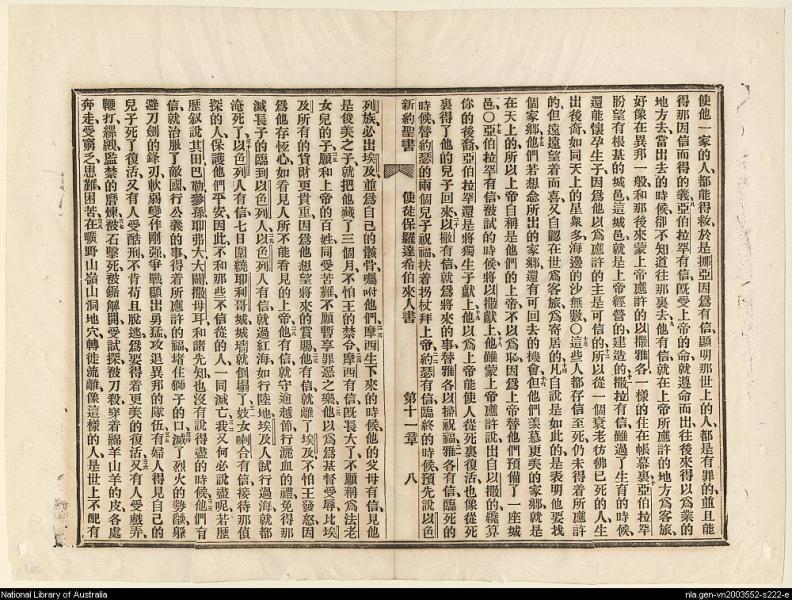 使他一家的人、都能得救、於是挪亞因爲有信、顯明那世上的人、都是有罪的、並且能
得那因信而得的義、亞伯拉罕有信、旣受上帝的命、就遵命而出、往後來得以爲業的
地方去、當出去的時候、卻不知道往那裏去、他有信、就在上帝所應許的地方爲客旅、
好像在異邦一般、和那後來蒙上帝應許的以撒雅各一樣的住在帳幕裏、亞伯拉罕
盼望有根基的城邑、這城邑就是上帝經營的建造的、撒拉有信、雖過了生育的時候、
還能懷孕生子、因爲他以爲應許的主是可信的、所以從一個衰老彷彿已死的人、生
出後裔、如同天上的星衆多、海邊的沙無數〇這些人都存信至死、仍未得着所應許
的、但遠遠望着而喜、又自認在世爲客旅、爲寄居的、凡自說是如此的、是表明他要找
個家鄉、他們若想念所出的家鄉、還有可回去的機會、但他們羨慕更美的家鄉、就是
在天上的、所以上帝自稱是他們的上帝、不以爲恥、因爲上帝替他們預備了一座城
邑〇亞伯拉罕有信、被試的時候、將以撒獻上、他雖蒙上帝應許說、出自以撒的、纔算
你的後裔、亞伯拉罕還是將獨生子獻上、他以爲上帝能使人從死裏復活、也像從死
裏得了他的兒子回來、以撒有信、就爲將來的事、替雅各以掃祝福、雅各有信、臨死的
時候、替約瑟的兩個兒子祝福、扶着拐杖拜上帝、約瑟有信、臨終的時候、預先說以色
新約聖書　使徒保羅達希伯來人書　第十一章　八
列族必出埃及、並爲自己的骸骨囑咐他們、摩西生下來的時候、他的父母有信、見他
是俊美之子、就把他藏了三個月、不怕王的禁令、摩西有信、旣長大了、不願稱爲法老
女兒的子、願和上帝的百姓、同受苦難、不願暫享罪惡之樂、他以爲爲基督受辱、比埃
及所有的貨財更貴重、因爲他想望將來的賞賜、他有信、就離了埃及、不怕王發怒、因
爲他存恆心、如看見人所不能看見的上帝、他有信、就守逾越節、行灑血的禮、免得那
滅長子的、臨到以色列人、以色列人有信、就過紅海、如行陸地、埃及人試行過海、就都
淹死了、以色列人有信、七日圍繞耶利哥城、城墻就倒塌了、妓女喇合有信、接待那偵
探的人、保護他們平安、因此不和那些不信從的人、一同滅亡、我又何必說盡呢、若歷
歷敘說其田、巴勒、參孫、耶弗大、大闢、撒母耳、和諸先知、也沒有說得盡的時候、他們有
信、就治服了敵國、行公義的事、得着所應許的福、堵住獅子的口、滅了烈火的勢、躲
避刀劍的鋒刃、軟弱變作剛强、爭戰顯出勇猛、攻退異邦的隊伍、有婦人得見自己的
兒子死了復活、又有人受酷刑、不肯苟且脫逃、爲要得着更美的復活、又有人受戲弄、
鞭打、縲絏、監禁的磨煉、被石擊死、被鋸解開、受試探、被刀殺、穿着綿羊山羊的皮、各處
奔走、受窮乏患難困苦、在曠野山嶺山洞地穴、轉徙流離、像這樣的人、是世上不配有
National Library of Australia
nla.gen-vn2003552-s222-e